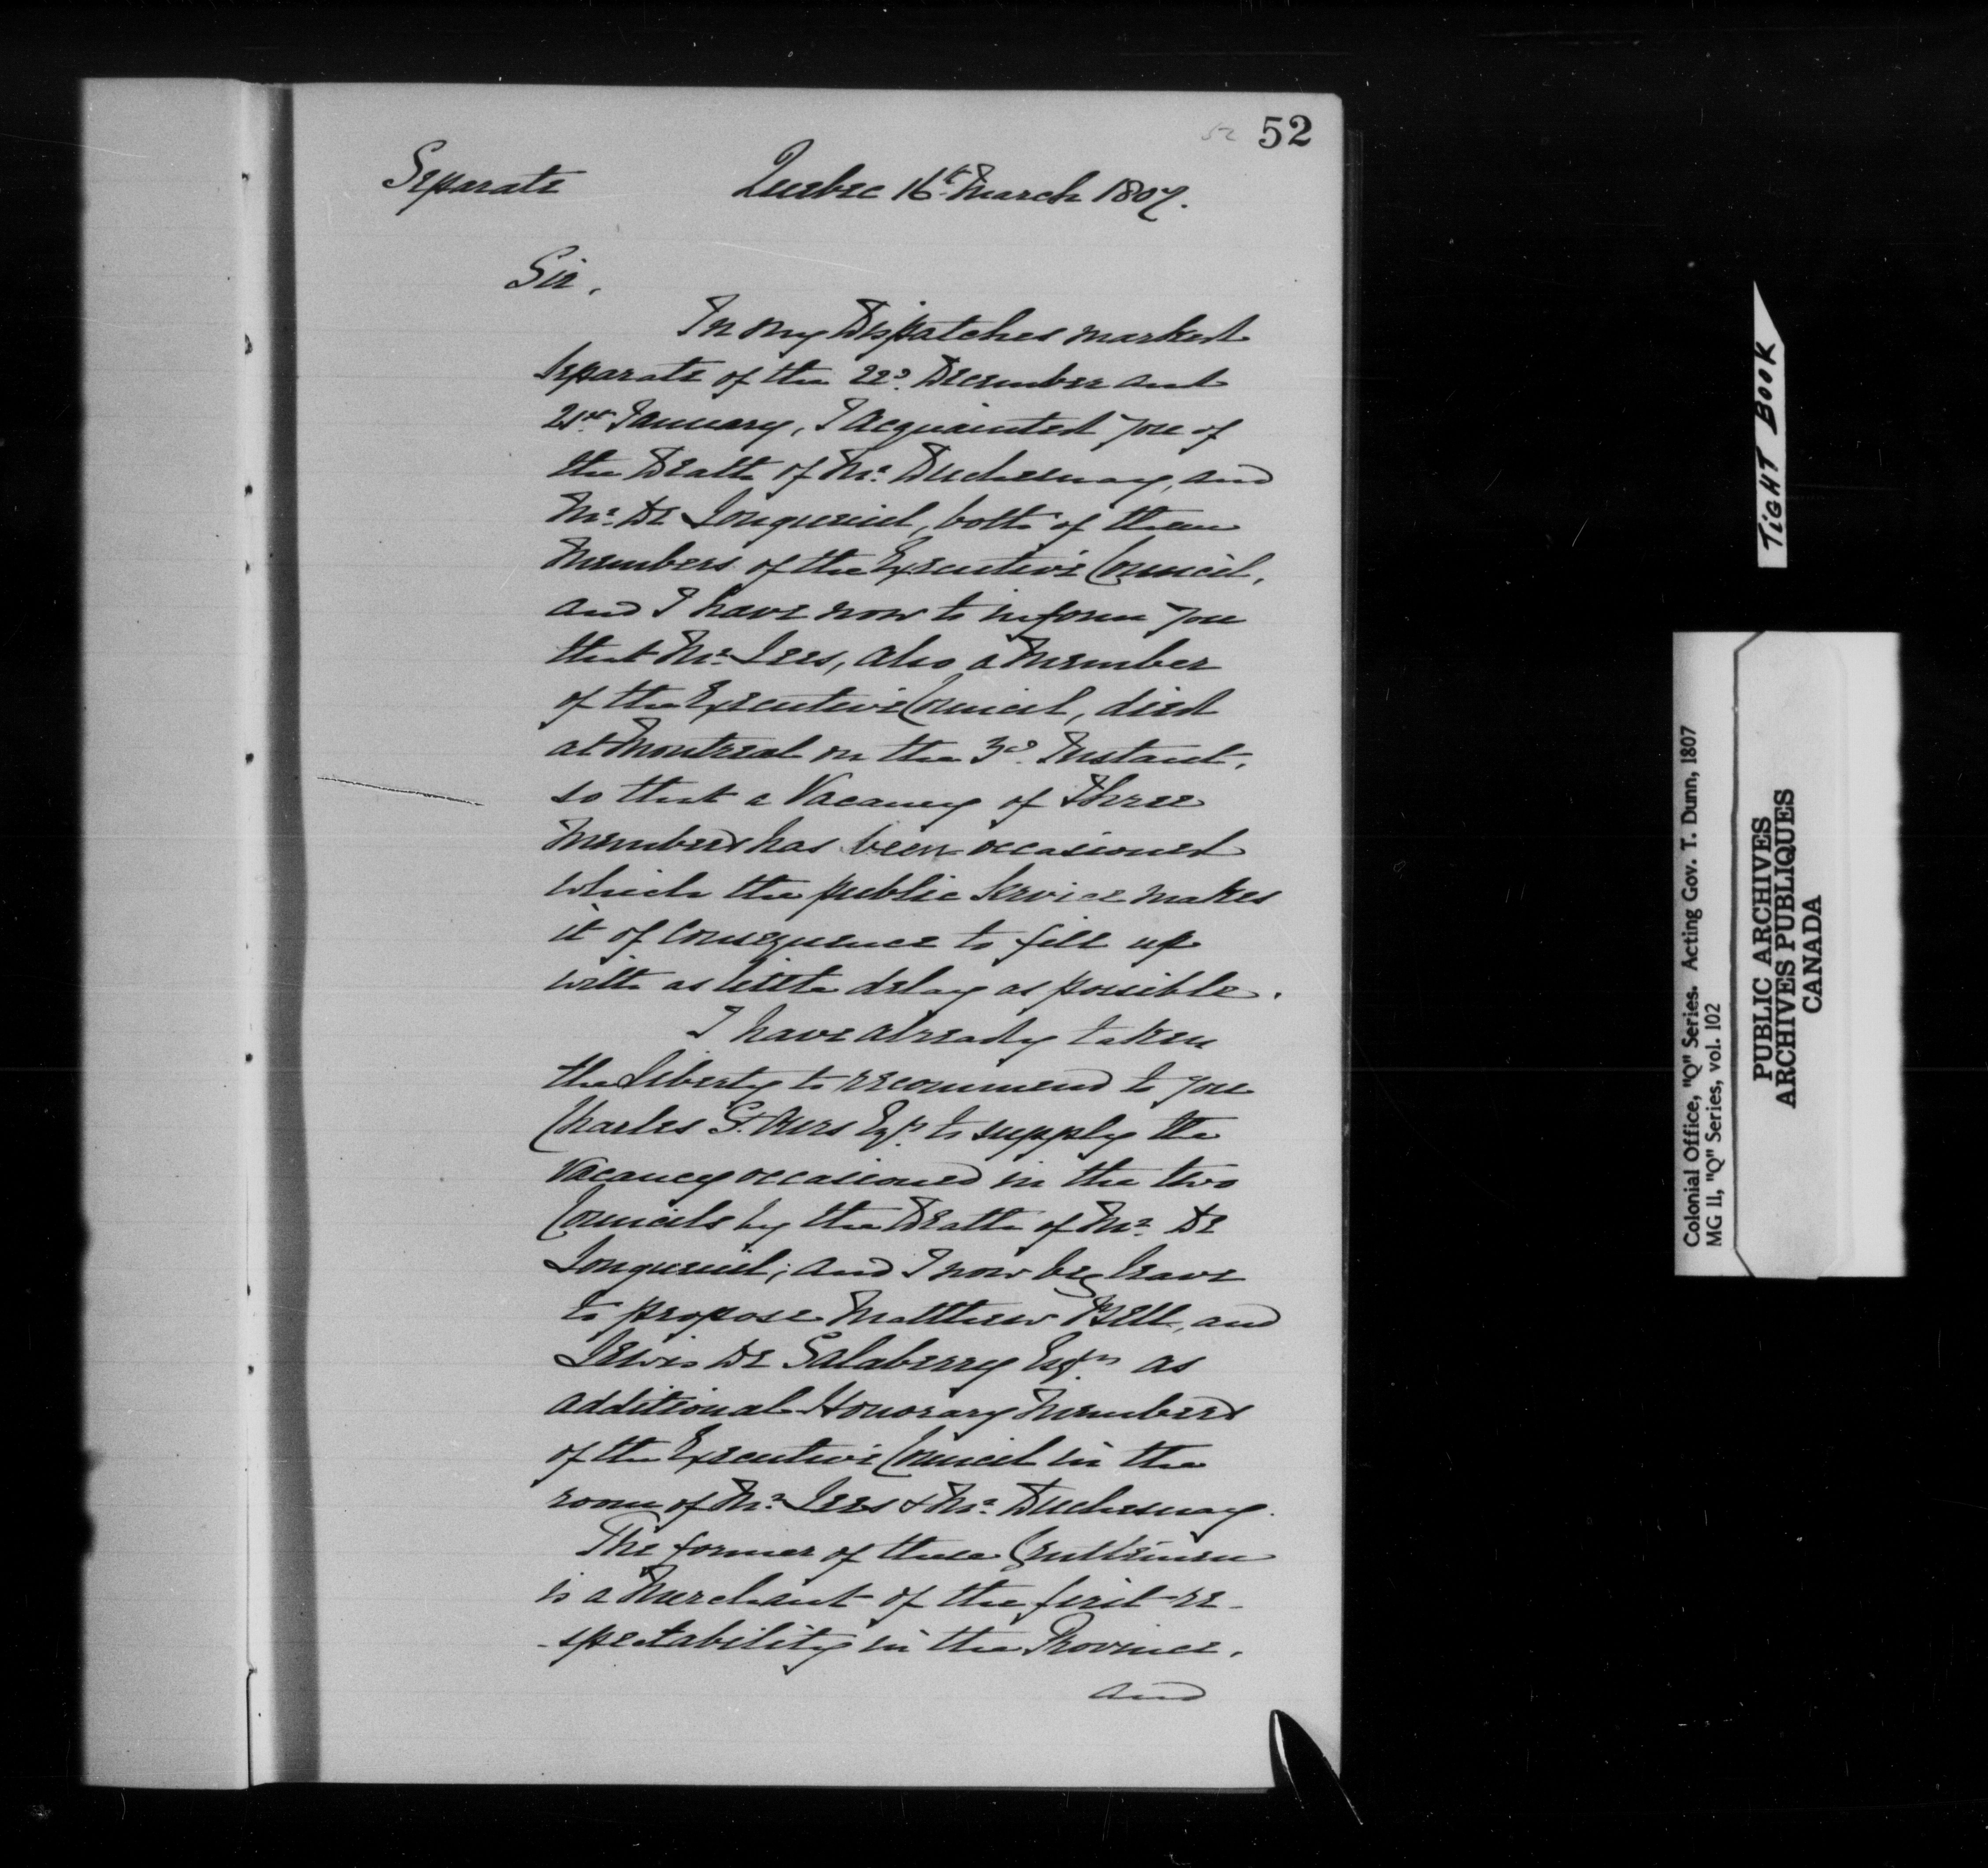 52 52
Separate Quebec 16th March 1807.
Sir,
In my Dispatches marked
Separate of the 22d. December and
21st January, I acquainted you of
the Death of Mr. Duchesnay, and
Mr. De Longueuil, both of them
Members of the Executive Council,
and I have now to inform you
that Mr. Lees, also a Member
of the Executive Council, died
at Montreal on the 3d. Instant,
so that a Vacancy of Three
Members has been occasioned
which the public Service makes
it of Consequence to fill up
with as little delay as possible.
I have already taken
the Liberty to recommend to you
Charles St. Ours Esqr. to supply the
Vacancy occasioned in the two
Councils by the Death of Mr. De
Longueuil; and I now beg leave
to propose Matthew Bell, and
Lewis De Salaberry Esqrs. as
additional Honorary Members
of the Executive Council in the
room of Mr. Lees & Mr. Duchesnay.
The former of these Gentlemen
is a Merchant of the first re-
-spectability in the Province,
and
TIGHT BOOK
Colonial Office, "Q" Series. Acting Gov. T. Dunn, 1807
MG 11, "Q" Series, vol. 102
PUBLIC ARCHIVES
ARCHIVES PUBLIQUES
CANADA